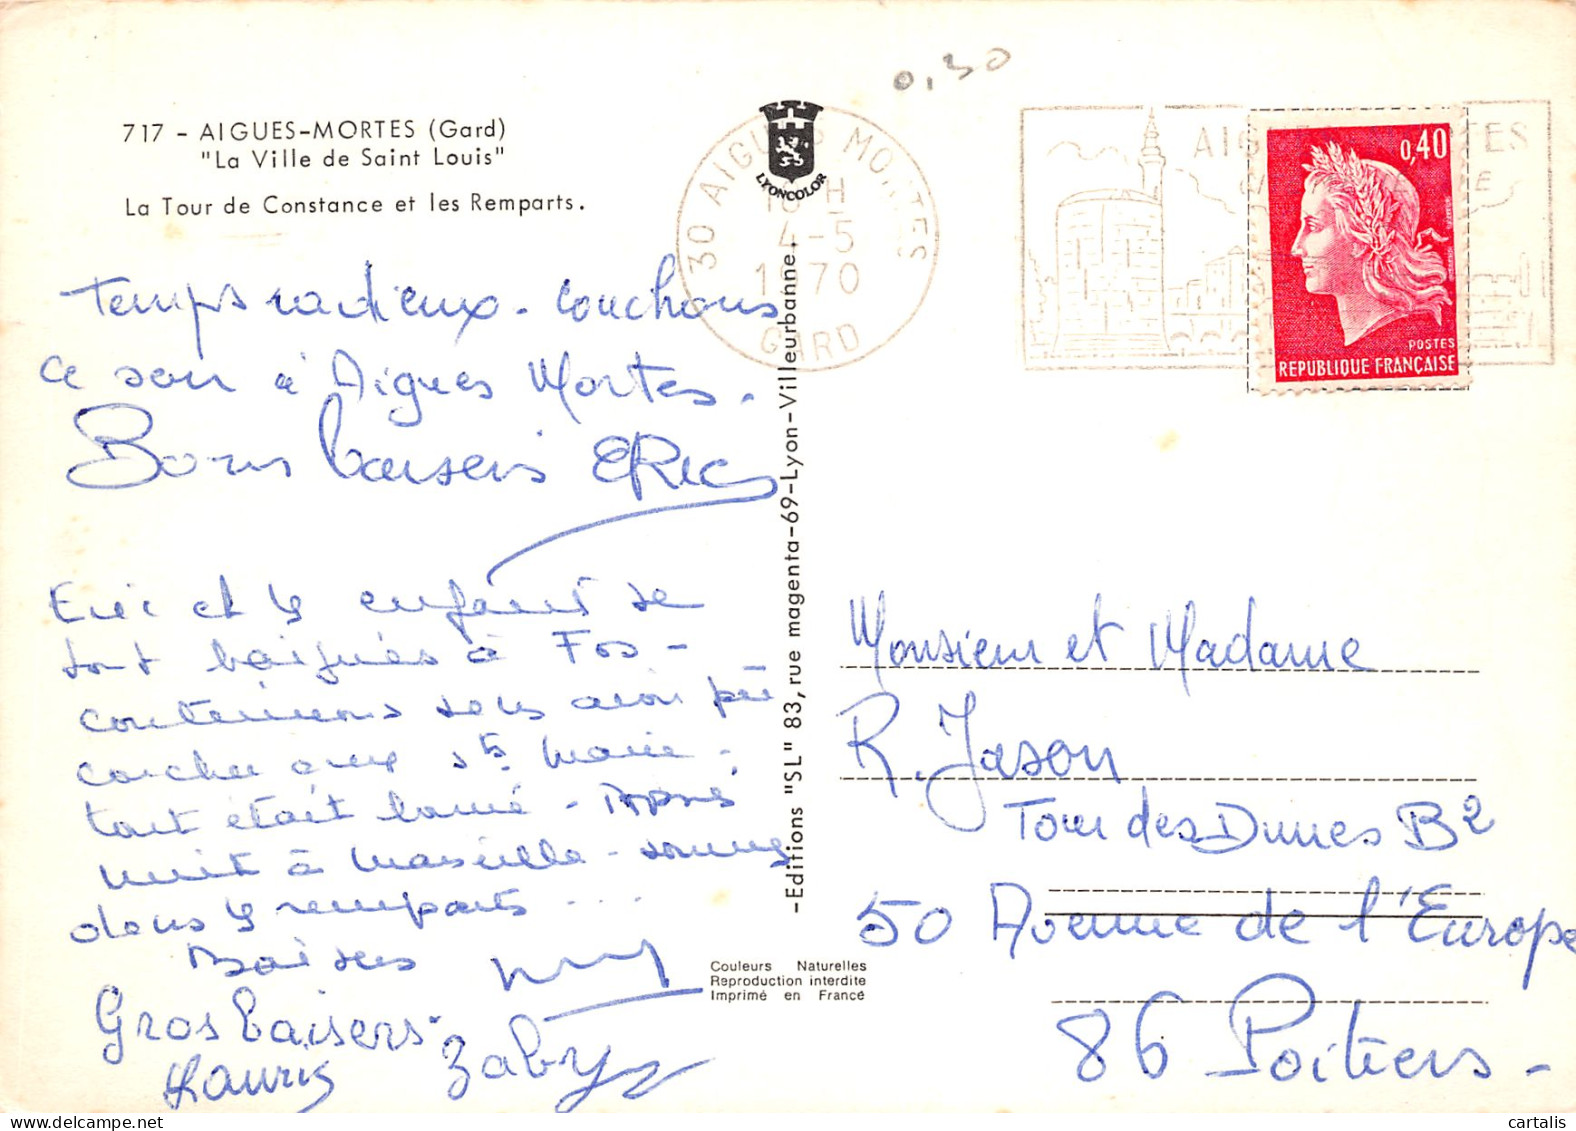 0,30
717 - AIGUES-MORTES (Gard)
"La Ville de Saint Louis"
La Tour de Constance et les Remparts.
LYONCOLOR
30 AIGUES MORTES
18 H
4-5
1970
GARD
AIGUES MORTES
0,40
POSTES
REPUBLIQUE FRANÇAISE
Temps radieux - couchons
ce soir à Aigues Mortes.
Bons baisers ERIC
Eric et ls enfants se
sont baignés à Fos -
continuons sans avoir pu
coucher aux Stes Marie -
tout était bourré - Après
nuit à Marseille - sommes
dans ls remparts ...
Baisers
Gros baisers -
Lauris Gaby
-Editions "SL" 83, rue magenta-69-Lyon-Villeurbanne.
Couleurs Naturelles
Reproduction interdite
Imprimé en France
Monsieur et Madame
R. Jason
Tour des Dunes B2
50 Avenue de l'Europe
86 Poitiers -
cartalis